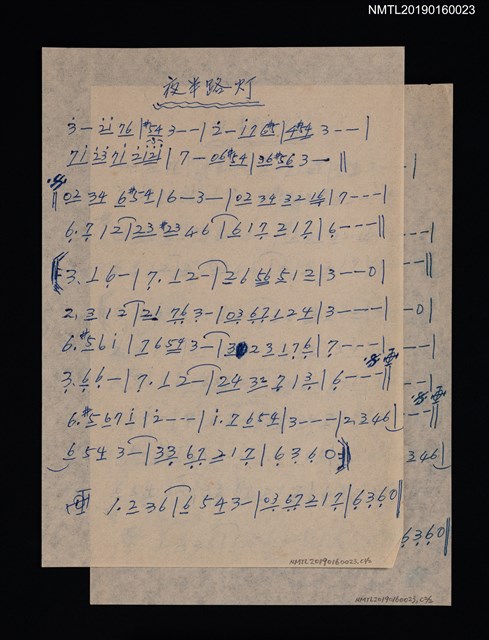 NMTL20190160023
夜半路灯
3 - 2i 76 | #54 3 - - | 2 - i7 6#5 | 4#4 3 - - |
7i 23 7i 2i2i | 7 - 06 #54 | 36 #56 3 - ||
|| 02 34 6#54 | 6 - 3 - | 02 34 32 16 | 7 - - - |
6. 7 12 | 23 #23 46 | 61 72 17 | 6 - - - ||
3. 1 6 - | 7. 1 2 - | 26 56 51 2 | 3 - - 0 |
2. 3 12 | 21 76 3 - | 03 67 12 4 | 3 - - - |
6. #56 i | 76 54 3 - | 3 02 3 1 76 | 7 - - - |
3. 66 - | 7. 1 2 - | 24 33 2 13 | 6 - - - ||
6. #567 i | 2 - - - | i. 7 654 | 3 - - - | 2346 |
6 54 3 - | 33 67 21 7 | 6360 ||
1. 2 36 | 6 543 - | 03 67 21 7 | 6360 ||
246 |
6360 ||
NMTL20190160023,1/2
NMTL20190160023,2/2